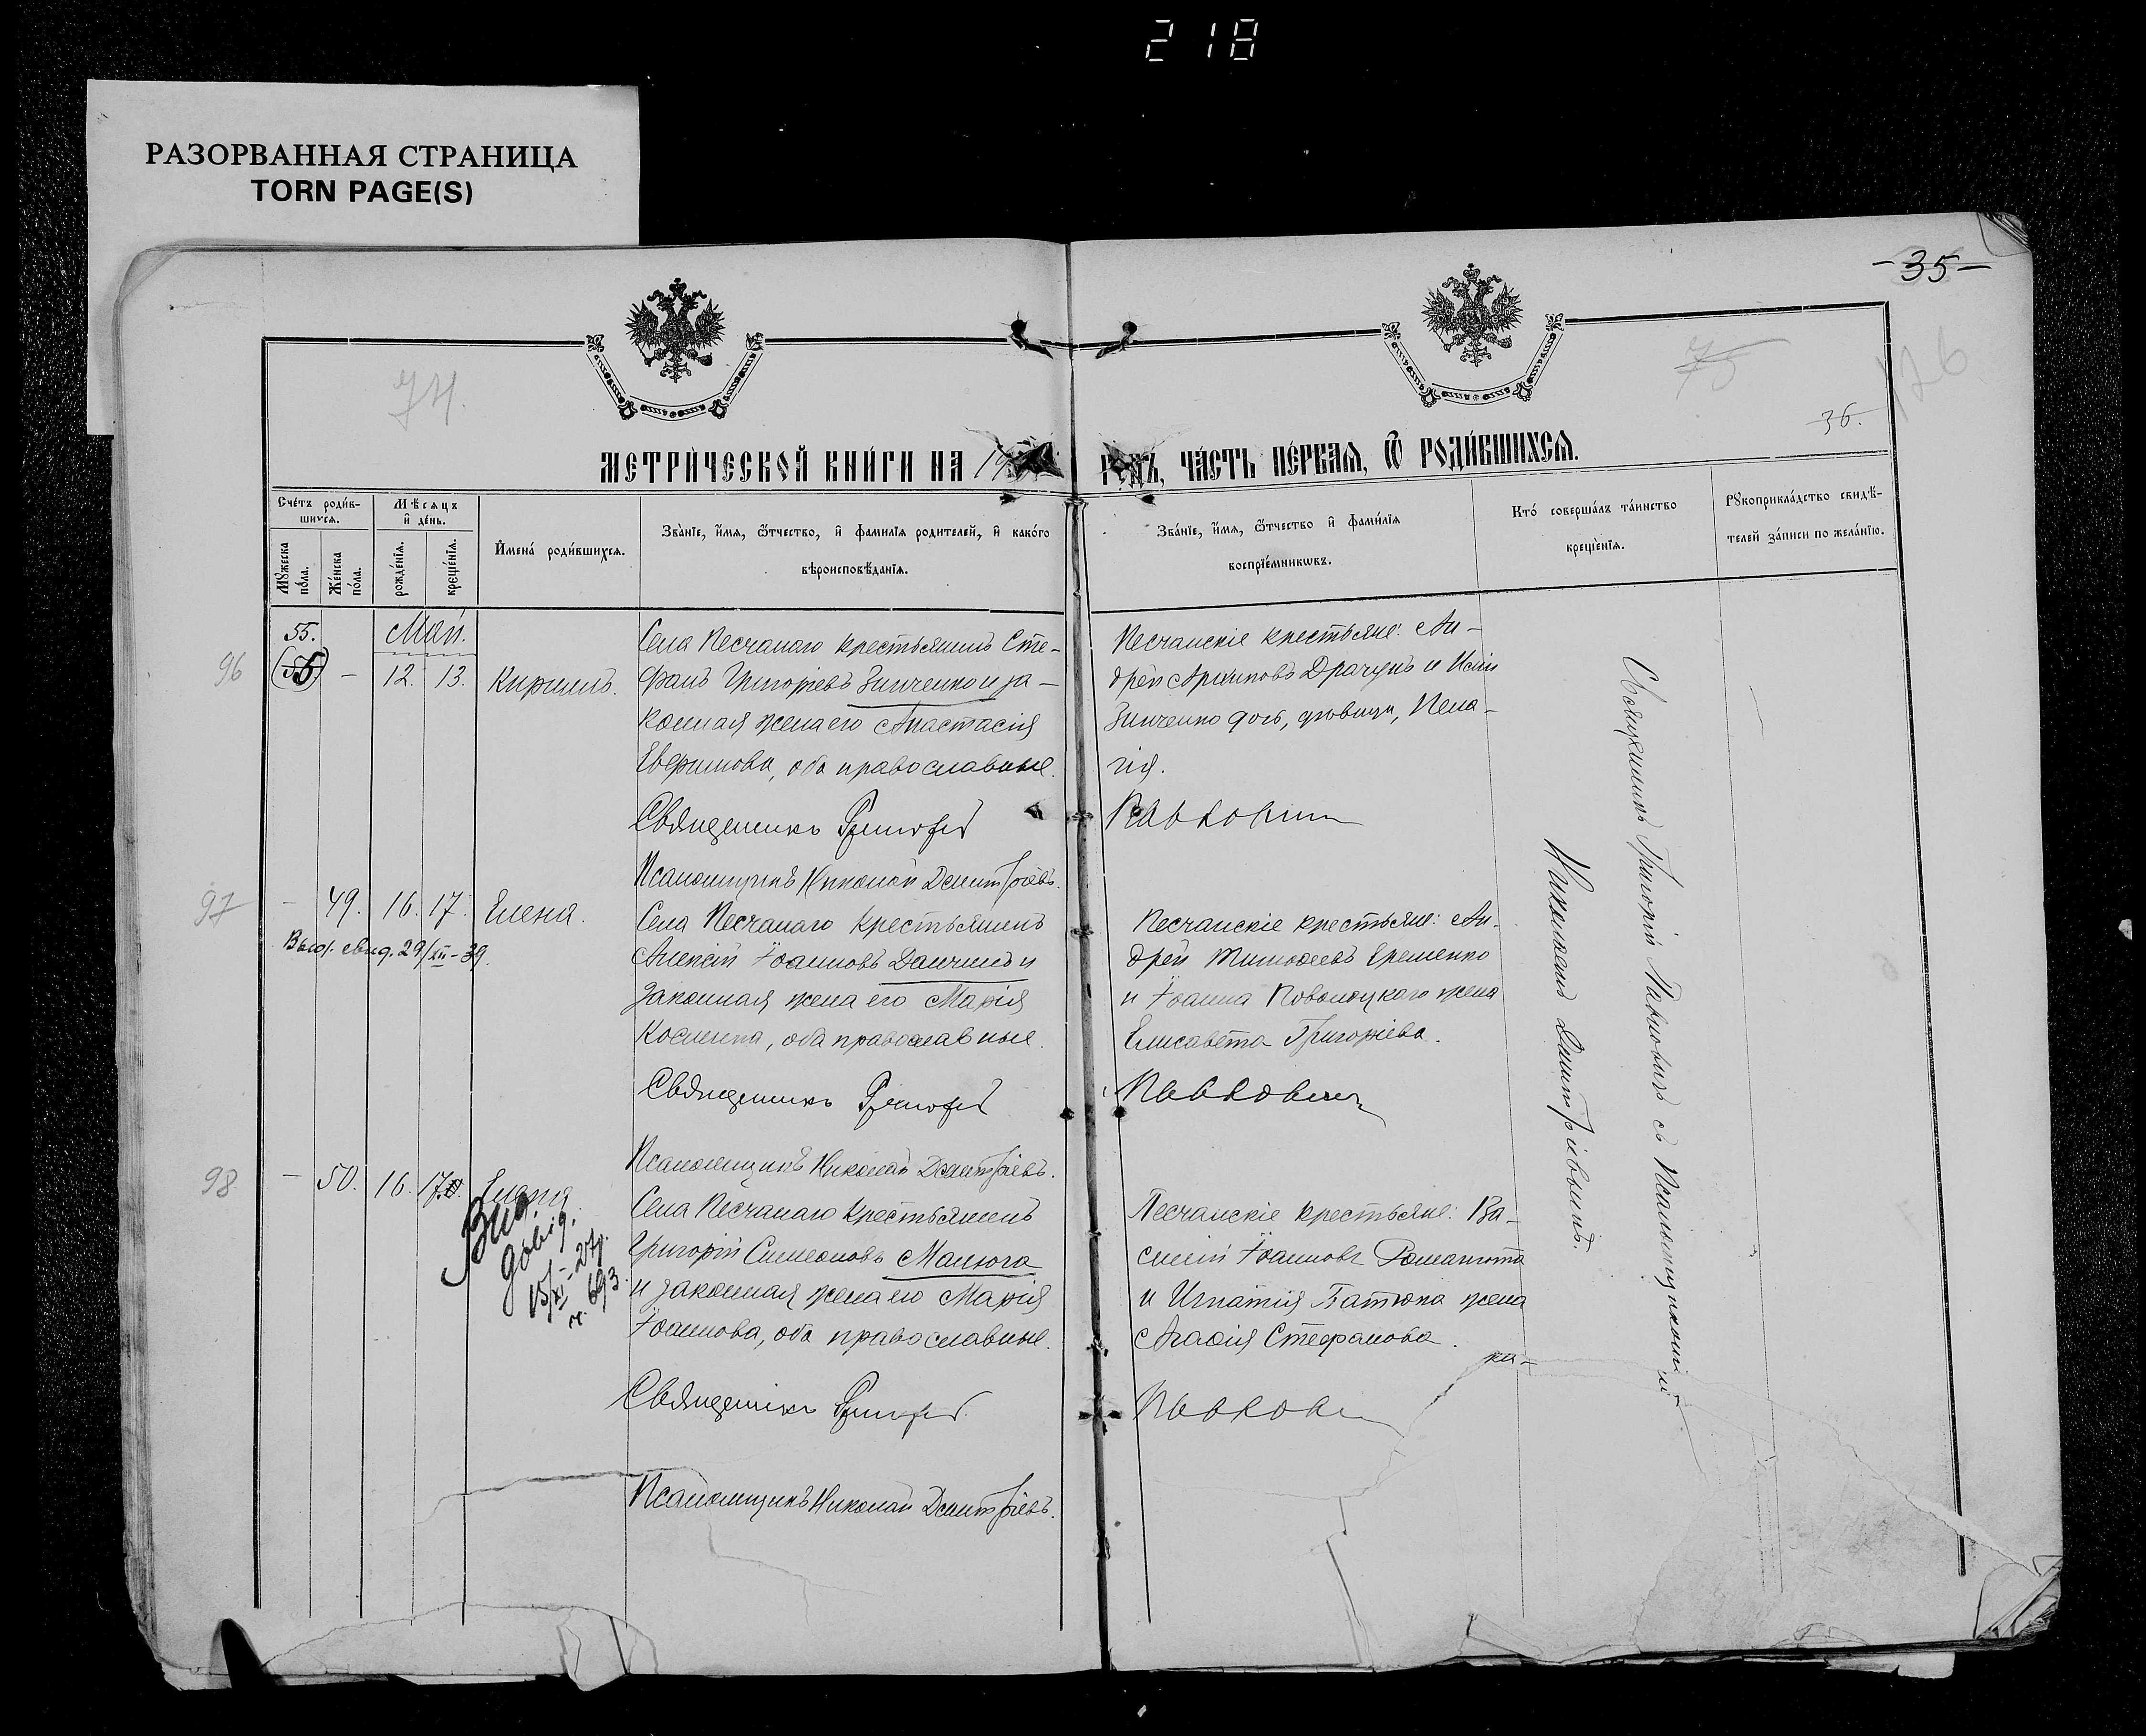 218
РАЗОРВАННАЯ СТРАНИЦА
TORN PAGE(S)
-35-
74.
75
176
36.
МЕТРИ́ЧЕСКОЙ КНИ́ГИ НА 19
ГОДЪ, ЧА́СТЬ ПЕ́РВАЯ, Ѿ РОДИ́ВШИХСЯ.
Сче́тъ роди́в-
шихся.
Мѣ́сяцъ
и҆ де́нь.
Му́жеска
по́ла.
Же́нска
по́ла.
рожде́нїя.
креще́нїя.
И҆мена́ роди́вшихся.
Зва́нїе, и҆́мя, ѻ҆́тчество, и҆ фами́лїя роди́телей, и҆ како́гѡ
вѣроисповѣ́данїя.
Зва́нїе, и҆́мя, ѻ҆́тчество и҆ фами́лїя
воспрїе́мникѡвъ.
Кто́ соверша́лъ та́инство
креще́нїя.
Рꙋкоприкла́дство свидѣ́-
телей за́писи по жела́нїю.
96
55.
-
Май.
12. 13.
Кириллъ.
Села Песчанаго крестьянинъ Сте-
фанъ Григорьевъ Зинченко и за-
конная жена его Анастасія
Евфимова, оба православные.
Священникъ Григорій
Псаломщикъ Николай Димитріевъ.
Песчанскіе крестьяне: Ан-
дрей Драчукъ и
Зинченко дочь, дѣвица, Пела-
гія.
Павловичъ
97
- 49. 16. 17. Елена.
Выд. свид. 29/XII-39.
Села Песчанаго крестьянинъ
Алексій Іоанновъ и
законная жена его Марія
Космина, оба православные.
Священникъ Григорій
Псаломщикъ Николай Димитріевъ.
Песчанскіе крестьяне: Ан-
дрей Тимоѳеевъ Еременко
и Іоанна Поволоцкаго жена
Елисавета Григоріева.
Павловичъ
98
- 50. 16. 17. Елена
Вид.
довід.
15/XI-27р.
ч. 693.
Села Песчанаго крестьянинъ
Григорій Симеоновъ Малюга
и законная жена его Марія
Іоаннова, оба православные.
Священникъ Григорій
Псаломщикъ Николай Димитріевъ.
Песчанскіе крестьяне: Ва-
силій Іоанновъ
и Игнатія Батюка жена
Агаѳія Стефанова.
Павлович
Священникъ Григорій Павловичъ съ Псаломщикомъ
Николаемъ Димитріевымъ.